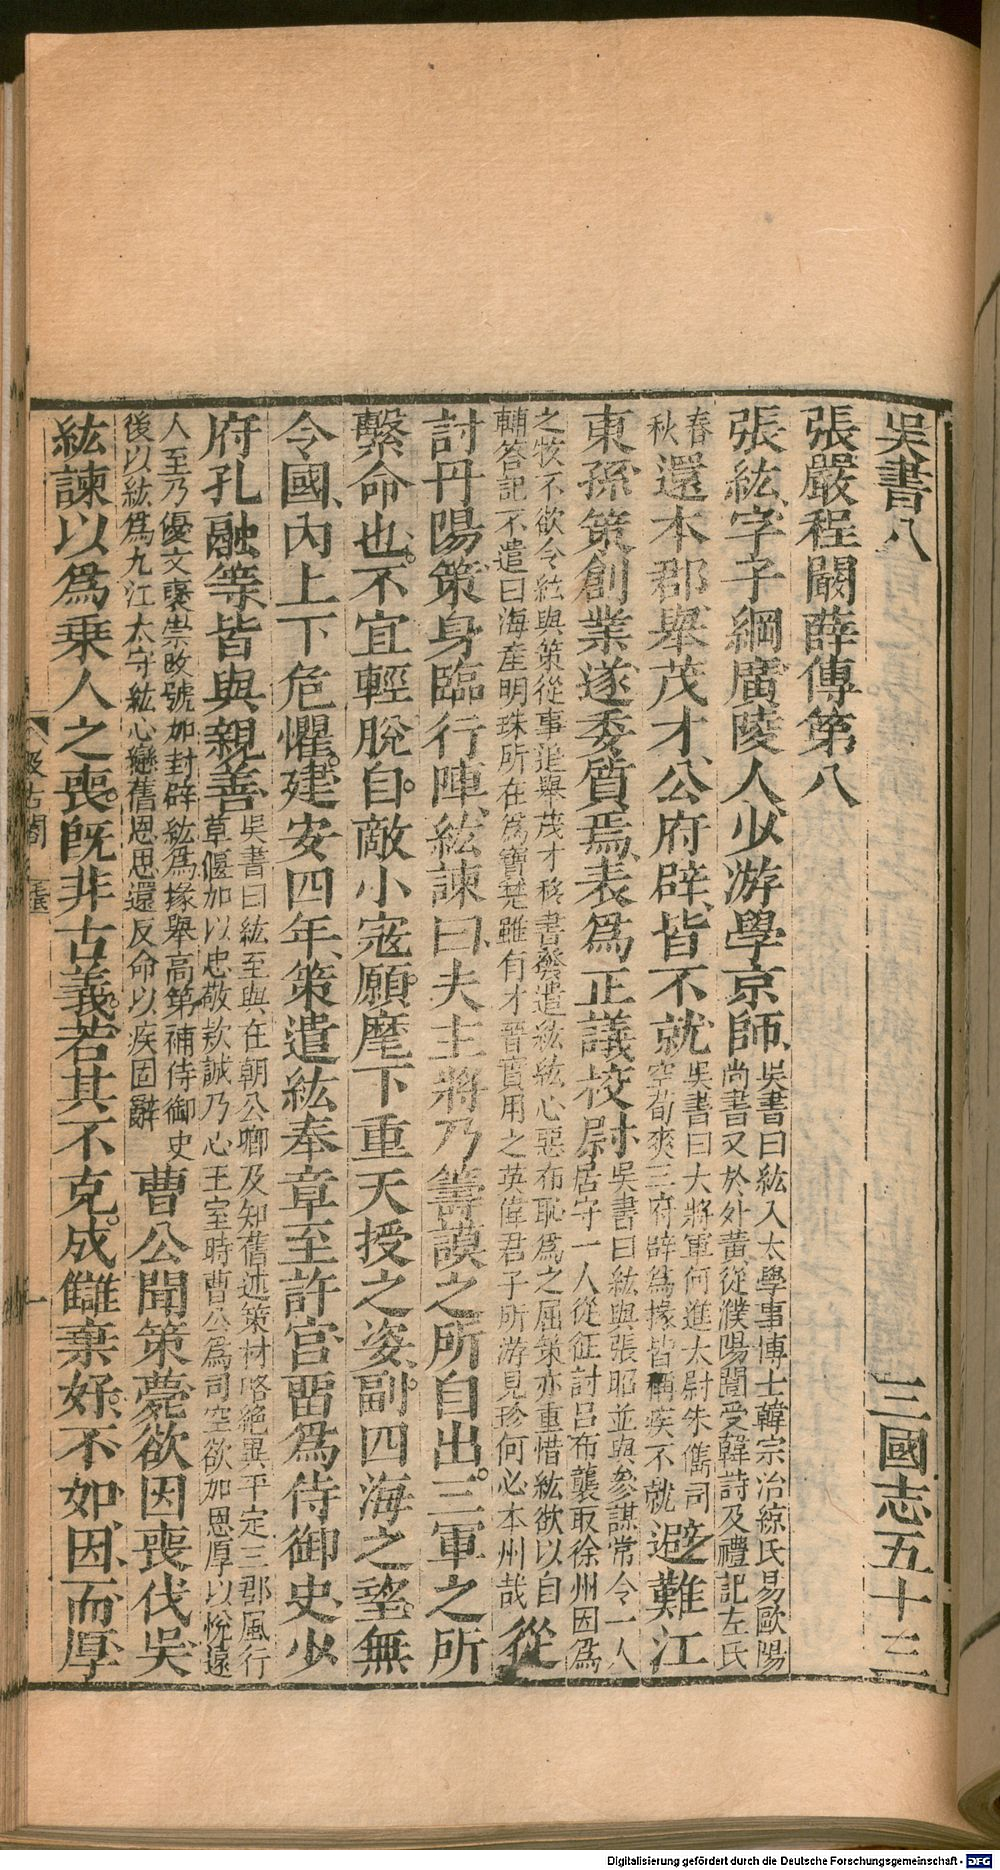 吳書八 三國志五十三
張嚴程闞薛傳第八
張紘字子綱廣陵人少游學京師、吳書曰紘入太學事博士韓宗治綜氏易歐陽
尚書又於外黃從濮陽闓受韓詩及禮記左氏
春
秋還本郡舉茂才、公府辟、皆不就吳書曰大將軍何進太尉朱儁司
空荀爽三府辟爲掾皆稱疾不就避難江
東孫策創業遂委質焉、表爲正議校尉吳書曰紘與張昭並與參謀常令一人
居守一人從征討呂布襲取徐州因爲
之牧不欲令紘與策從事追舉茂才移書發遣紘紘心惡布恥爲之屈策亦重惜紘欲以自
輔答記不遣曰海產明珠所在爲寶楚雖有才晉實用之英偉君子所游見珍何必本州哉從
討丹陽、策身臨行陣、紘諫曰、夫主將乃籌謨之所自出。三軍之所
繫命也。不宜輕脫自敵小寇。願麾下重天授之姿、副四海之望、無
令國、內上下危懼。建安四年、策遣紘奉章至許宮、畱爲侍御史、少
府孔融等皆與親善吳書曰紘至與在朝公卿及知舊述策材略絕異平定三郡風行
草偃加以忠敬款誠乃心王室時曹公爲司空欲加恩厚以悅遠
人至乃優文襃崇改號加封辟紘爲掾舉高第補侍御史
後以紘爲九江太守紘心戀舊恩思還反命以疾固辭曹公聞策薨欲因喪伐吳
紘諫以爲乘人之喪。旣非古義。若其不克。成讎棄好。不如因而厚
汲古閣
一
Digitalisierung gefördert durch die Deutsche Forschungsgemeinschaft - DFG